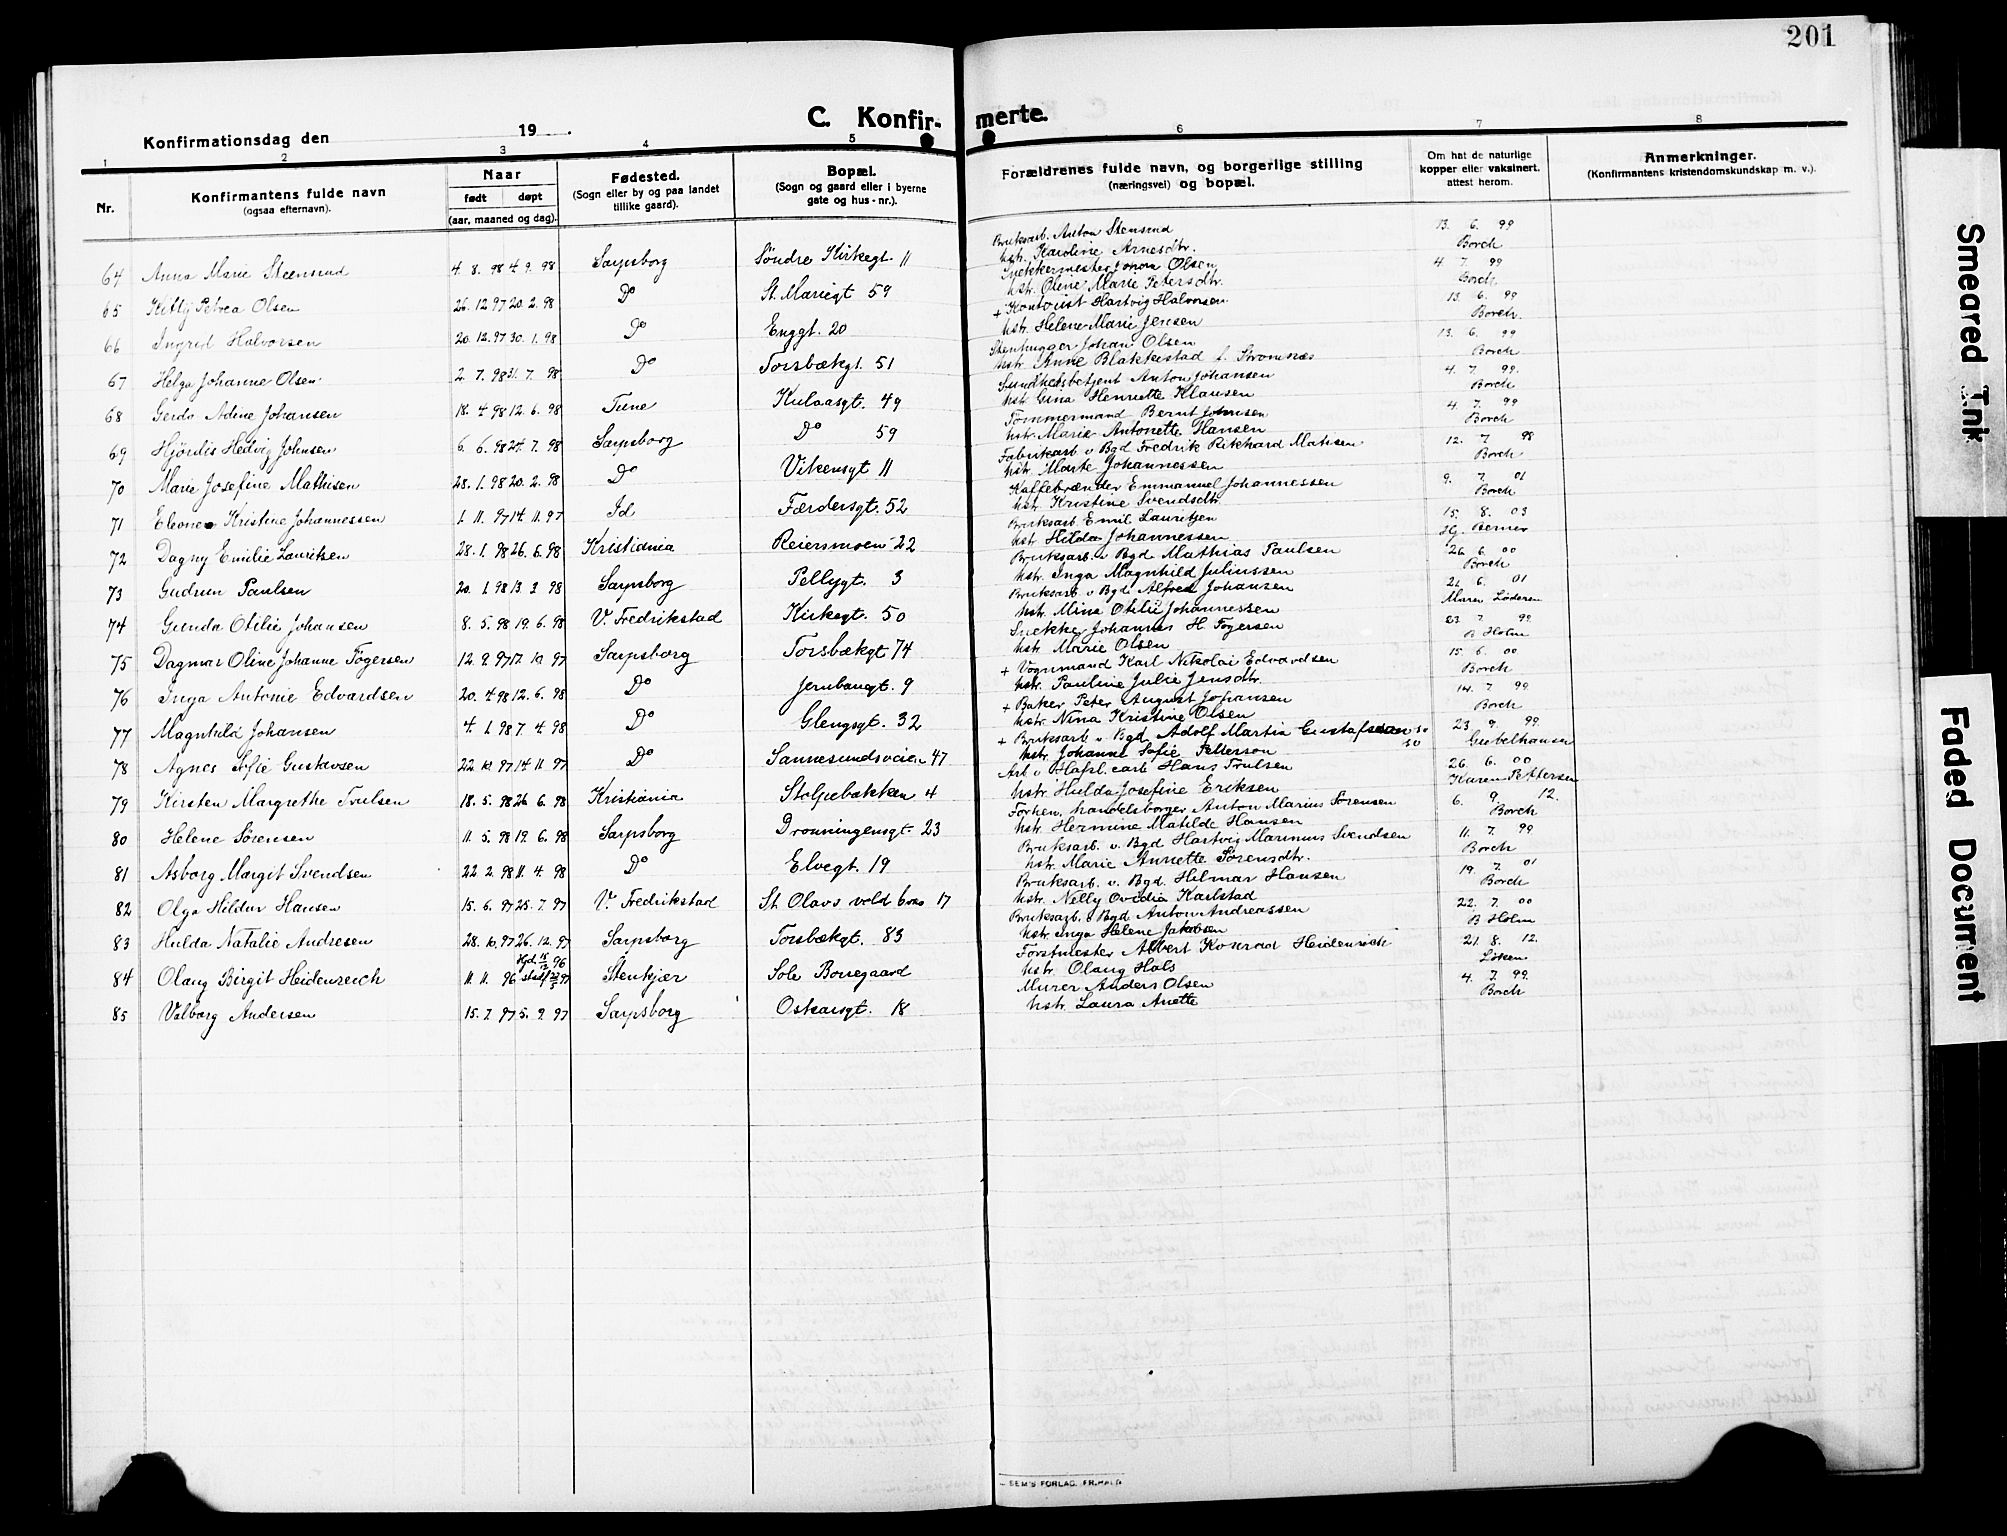 201
C. Konfirmerte.
Konfirmationsdag den 19
1 2 3 4 5 6 7 8
Nr.
Konfirmantens fulde navn
(ogsaa efternavn).
Naar
født døpt
(aar, maaned og dag).
Fødested.
(Sogn eller by og paa landet
tillike gaard).
Bopæl.
(Sogn og gaard eller i byerne
gate og hus-nr.).
Forældrenes fulde navn, og borgerlige stilling
(næringsvei) og bopæl.
Om hat de naturlige
kopper eller vaksinert.
attest herom.
Anmerkninger.
(Konfirmantens kristendomskundskap m. v.).
64 Anna Marie Steensrud 4. 8. 98 4. 9. 98 Sarpsborg Søndre Kirkegt 11 Bruksarb. Anton Stensrud 13. 6. 99
hstr. Karoline Arnesdtr. Borch
65 Kitty Petrea Olsen 26. 12. 97 20. 2. 98 Do St. Mariegt 59 Snekkermester Johan Olsen 4. 7. 99
hstr. Oline Marie Petersdtr. Borch
66 Ingrid Halvorsen 20. 12. 97 30. 1. 98 Do Enggt. 20 + Kontorist Hartvig Halvorsen 13. 6. 99
hstr. Helene Marie Jensen Borch.
67 Helga Johanne Olsen 2. 7. 98 31. 7. 98 Do Torsbækgt. 51 Stenhugger Johan Olsen 13. 6. 99
hstr. Anne Blakkestad f. Stromnæs Borch
68 Gerda Adine Johansen 18. 4 98 12. 6. 98 Tune Kulaasgt. 49 Sundhetsbetjent Anton Johansen 4. 7. 99.
hstr Gina Henriette Klausen Borch
69 Hjørdis Hedvig Johnsen 6. 6. 98 24. 7. 98 Sarpsborg Do 59 Tømmermand Bernt Johnsen 4. 7. 99
hstr. Marie Antonette Hansen Borch
70 Marie Josefine Mathisen 28. 1. 98 20. 2. 98 Do Vikensgt 11 Fabriksarb v Bgd Fredrik Rikhard Matisen 12. 7. 98
hstr. Marte Johannessen Borch
71 Eleonore Kristine Johannessen 1. 11. 97 14. 11. 97 Id Færdersgt. 52 Kaffebrænder Emmanuel Johannessen 9. 7. 01
hstr. Kristine Svendsdtr. Borch
72 Dagny Emilie Lauritsen 28. 1. 98 26. 6. 98 Kristiania Reiersmoen 22 Bruksarb. Emil Lauritzen 15. 8. 03
hstr Hilda Johannessen Hj. Berner
73 Gudrun Paulsen 20. 1. 98 13. 3 98 Sarpsborg Pellygt. 3 Bruksarb. v Bgd Mathias Paulsen 26. 6. 00
hstr. Inga Magnhild Juliussen Borch
74 Gunda Otilie Johansen 8. 5. 98 19. 6. 98 V. Fredrikstad Kirkegt. 50 Bruksarb. v Bgd Alfred Johansen 21. 6. 01
hstr. Mina Otilie Johannessen Maren Löderen
75 Dagmar Oline Johanne Togersen 12. 9. 97 17. 10. 97 Sarpsborg Torsbækgt 74 Snekker Johannes H. Togersen 23 7. 99
hstr. Marie Olsen B Holm
76 Inga Antonie Edvardsen 20. 4. 98 12. 6. 98 Do Jernbanegt. 9 + Vognmand Karl Nikolai Edvardsen 15. 6. 00
hstr. Pauline Julie Jensdtr. Borch
77 Magnhild Johansen 4. 1. 98 7. 4. 98 Do Glengsgt. 32 + Baker Peter August Johansen 14. 7. 99.
hstr. Nina Kristine Olsen Borch
78 Agnes Sofie Gustavsen 22 10. 97 14 11. 97 Do Sannesundsveien 47 + Bruksarb v. Bgd Adolf Martin Gustafsen 23 9. 99.
hstr. Johanne Sofie Petterson Giebelhausen
79 Kirsten Margrethe Trulsen 18. 5. 98 26 6. 98 Kristiania Stolpebakken 4 Arb v Hafsl. carb Hans Trulsen 26. 6. 00
hstr. Hulda Josefine Eriksen Karen Pettersen
80 Helene Sørensen 11. 5. 98 19. 6. 98 Sarpsborg Dronningensgt. 23 Forhen. handelsborger Anton Marius Sørensen 6. 9. 12.
hstr. Hermine Matilde Hansen Borch
81 Asborg Margit Svendsen 22 2. 98 11. 4. 98 Do Elvegt. 19 Bruksarb. v. Bgd Hartvig Marinius Svendsen 11. 7. 99
hstr. Marie Annette Sørensdtr. Borch
82 Olga Hildur Hansen 15. 6. 97 25. 7. 97 V. Fredrikstad St. Olavs vold 17 Bruksarb. v. Bgd. Hilmar Hansen 19. 7. 01
hstr. Nelly Ovidia Karlstad Borch
83 Hulda Natalie Andresen 28. 10. 97 26. 12. 97 Sarpsborg Torsbækgt. 83 Bruksarb. v Bgd Anton Andreassen 22. 7. 00
hstr. Inga Helene Jakobsen B Holm
84 Olaug Birgit Heidenreich 11. 11. 96 Stenkjær Sole Borregaard Forstmester Albert Konrad Heidenreich 21. 8. 12.
hstr. Olaug Hals Løken
85 Valborg Andersen 15. 7. 97 5. 9. 97 Sarpsborg Oskarsgt. 18 Murer Anders Olsen 4. 7. 99.
hstr. Laura Anette Borch
SEM'S FORLAG, FR.HALD
Smeared Ink
Faded Document